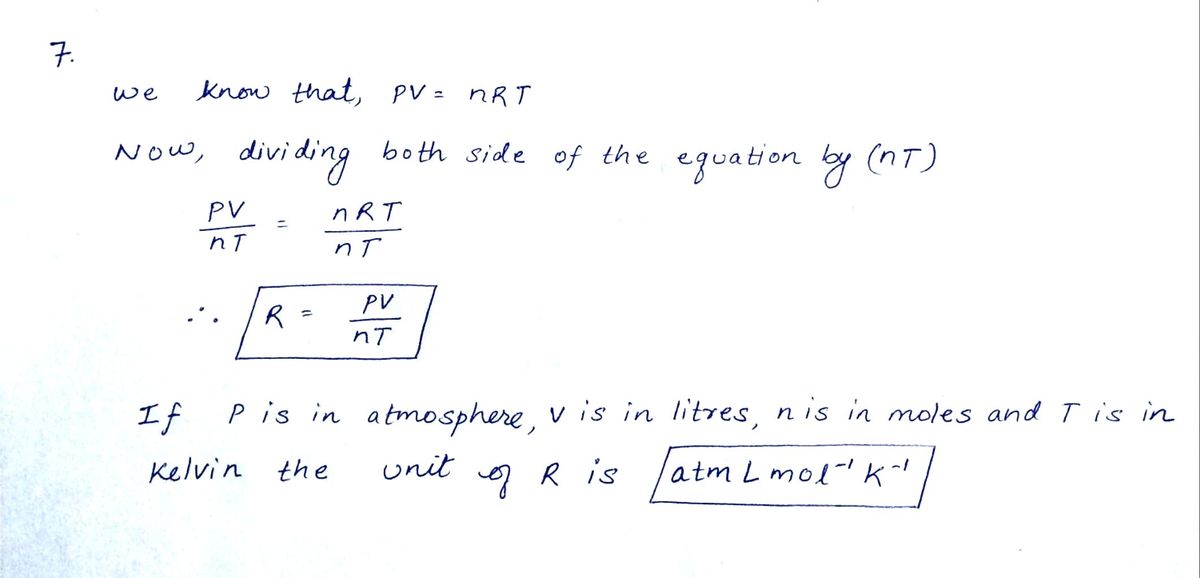 7.
we know that, PV = nRT
Now, dividing both side of the equation by (nT)
PV/nT = nRT/nT
∴ R = PV/nT
If P is in atmosphere, V is in litres, n is in moles and T is in
Kelvin the unit of R is atm L mol⁻¹ K⁻¹